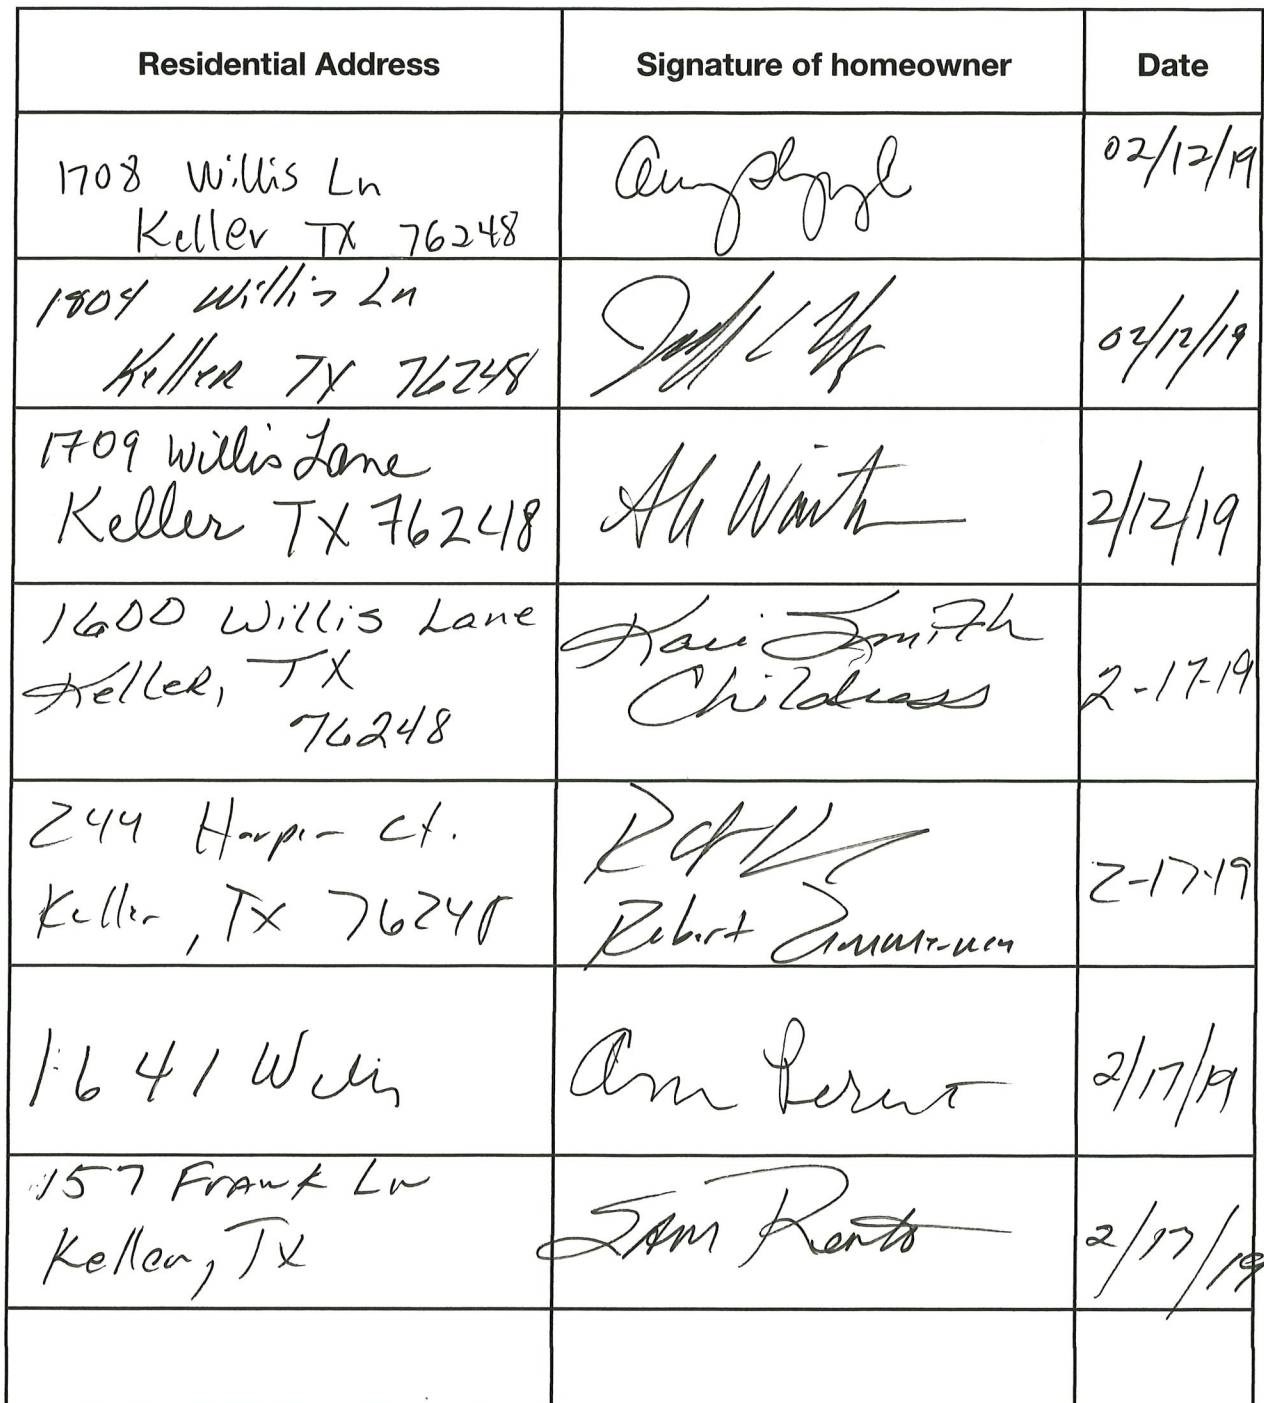 Residential Address Signature of homeowner Date
1708 Willis Ln
Keller TX 76248
02/12/19
1804 Willis Ln
Keller TX 76248
02/12/19
1709 Willis Lane
Keller TX 76248
2/12/19
1600 Willis Lane
Keller, TX
76248
Kaci Smith
Childress
2-17-19
244 Harper Ct.
Keller, TX 76248
Robert Zimmerman
2-17-19
1641 Willis
Ann
2/17/19
157 Frank Ln
Keller, TX
Sam
2/17/19